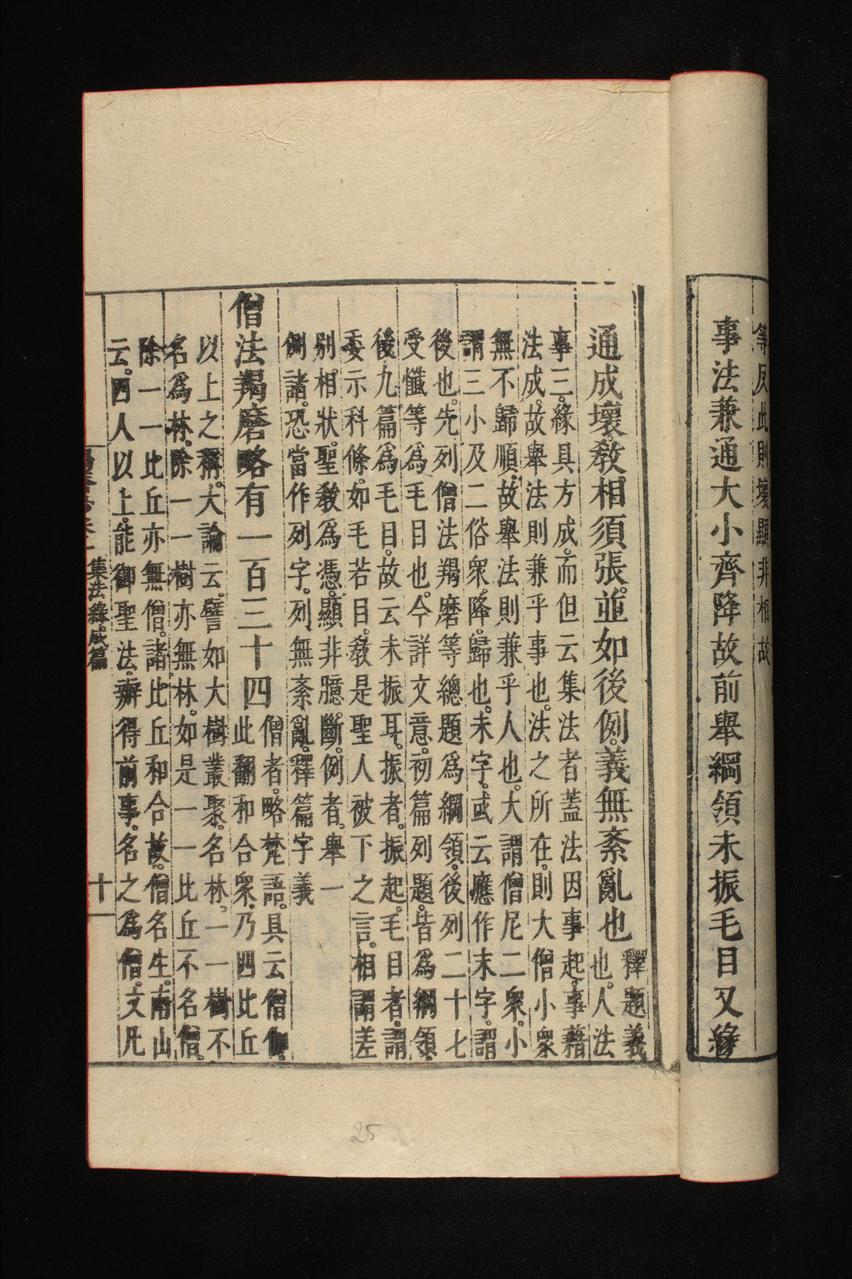 等反此則壞顯非相故
事法兼通大小齊降故前舉綱領未振毛目又緣
通成壞教相須張並如後例義無紊亂也
釋題義
也人法
事三緣具方成而但云集法者蓋法因事起事藉
法成故舉法則兼乎事也法之所在則大僧小衆
無不歸順故舉法則兼乎人也大謂僧尼二衆小
謂三小及二俗衆降歸也未字或云應作末字謂
後也先列僧法羯磨等總題爲綱領後列二十七
受懺等爲毛目也今詳文意初篇列題皆爲綱領
後九篇爲毛目故云未振耳振者振起毛目者謂
委示科條如毛若目教是聖人被下之言相謂差
別相狀聖教爲憑顯非臆斷例者舉一
例諸恐當作列字列無紊亂釋篇字義
僧法羯磨略有一百三十四
僧者略梵語具云僧伽
此翻和合衆乃四比丘
以上之稱大論云譬如大樹叢聚名林一一樹不
名爲林除一一樹亦無林如是一一比丘不名僧
除一一比丘亦無僧諸比丘和合故僧名生南山
云四人以上能御聖法辦得前事名之爲僧文凡
集法緣成篇
十一
25